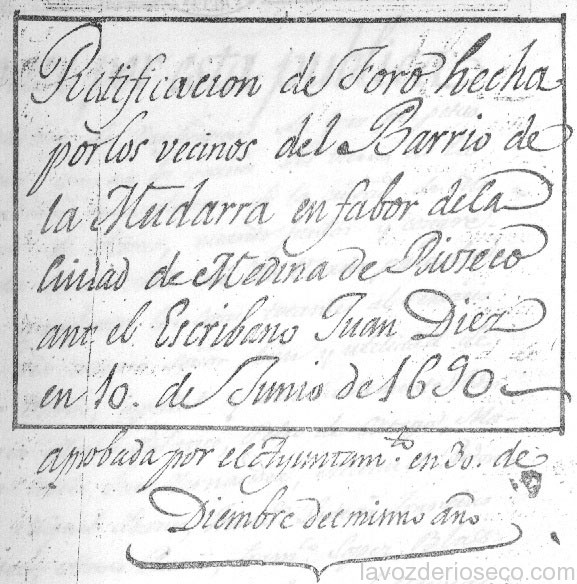 Ratificacion de Foro hecha
por los vecinos del Barrio de
la Mudarra en fabor de la
Ciudad de Medina de Rioseco
ant el Escribano Juan Diez
en 10. de Junio de 1690
aprobada por el Ayuntam.to en 30. de
Diembre del mismo año
lavozderioseco.com